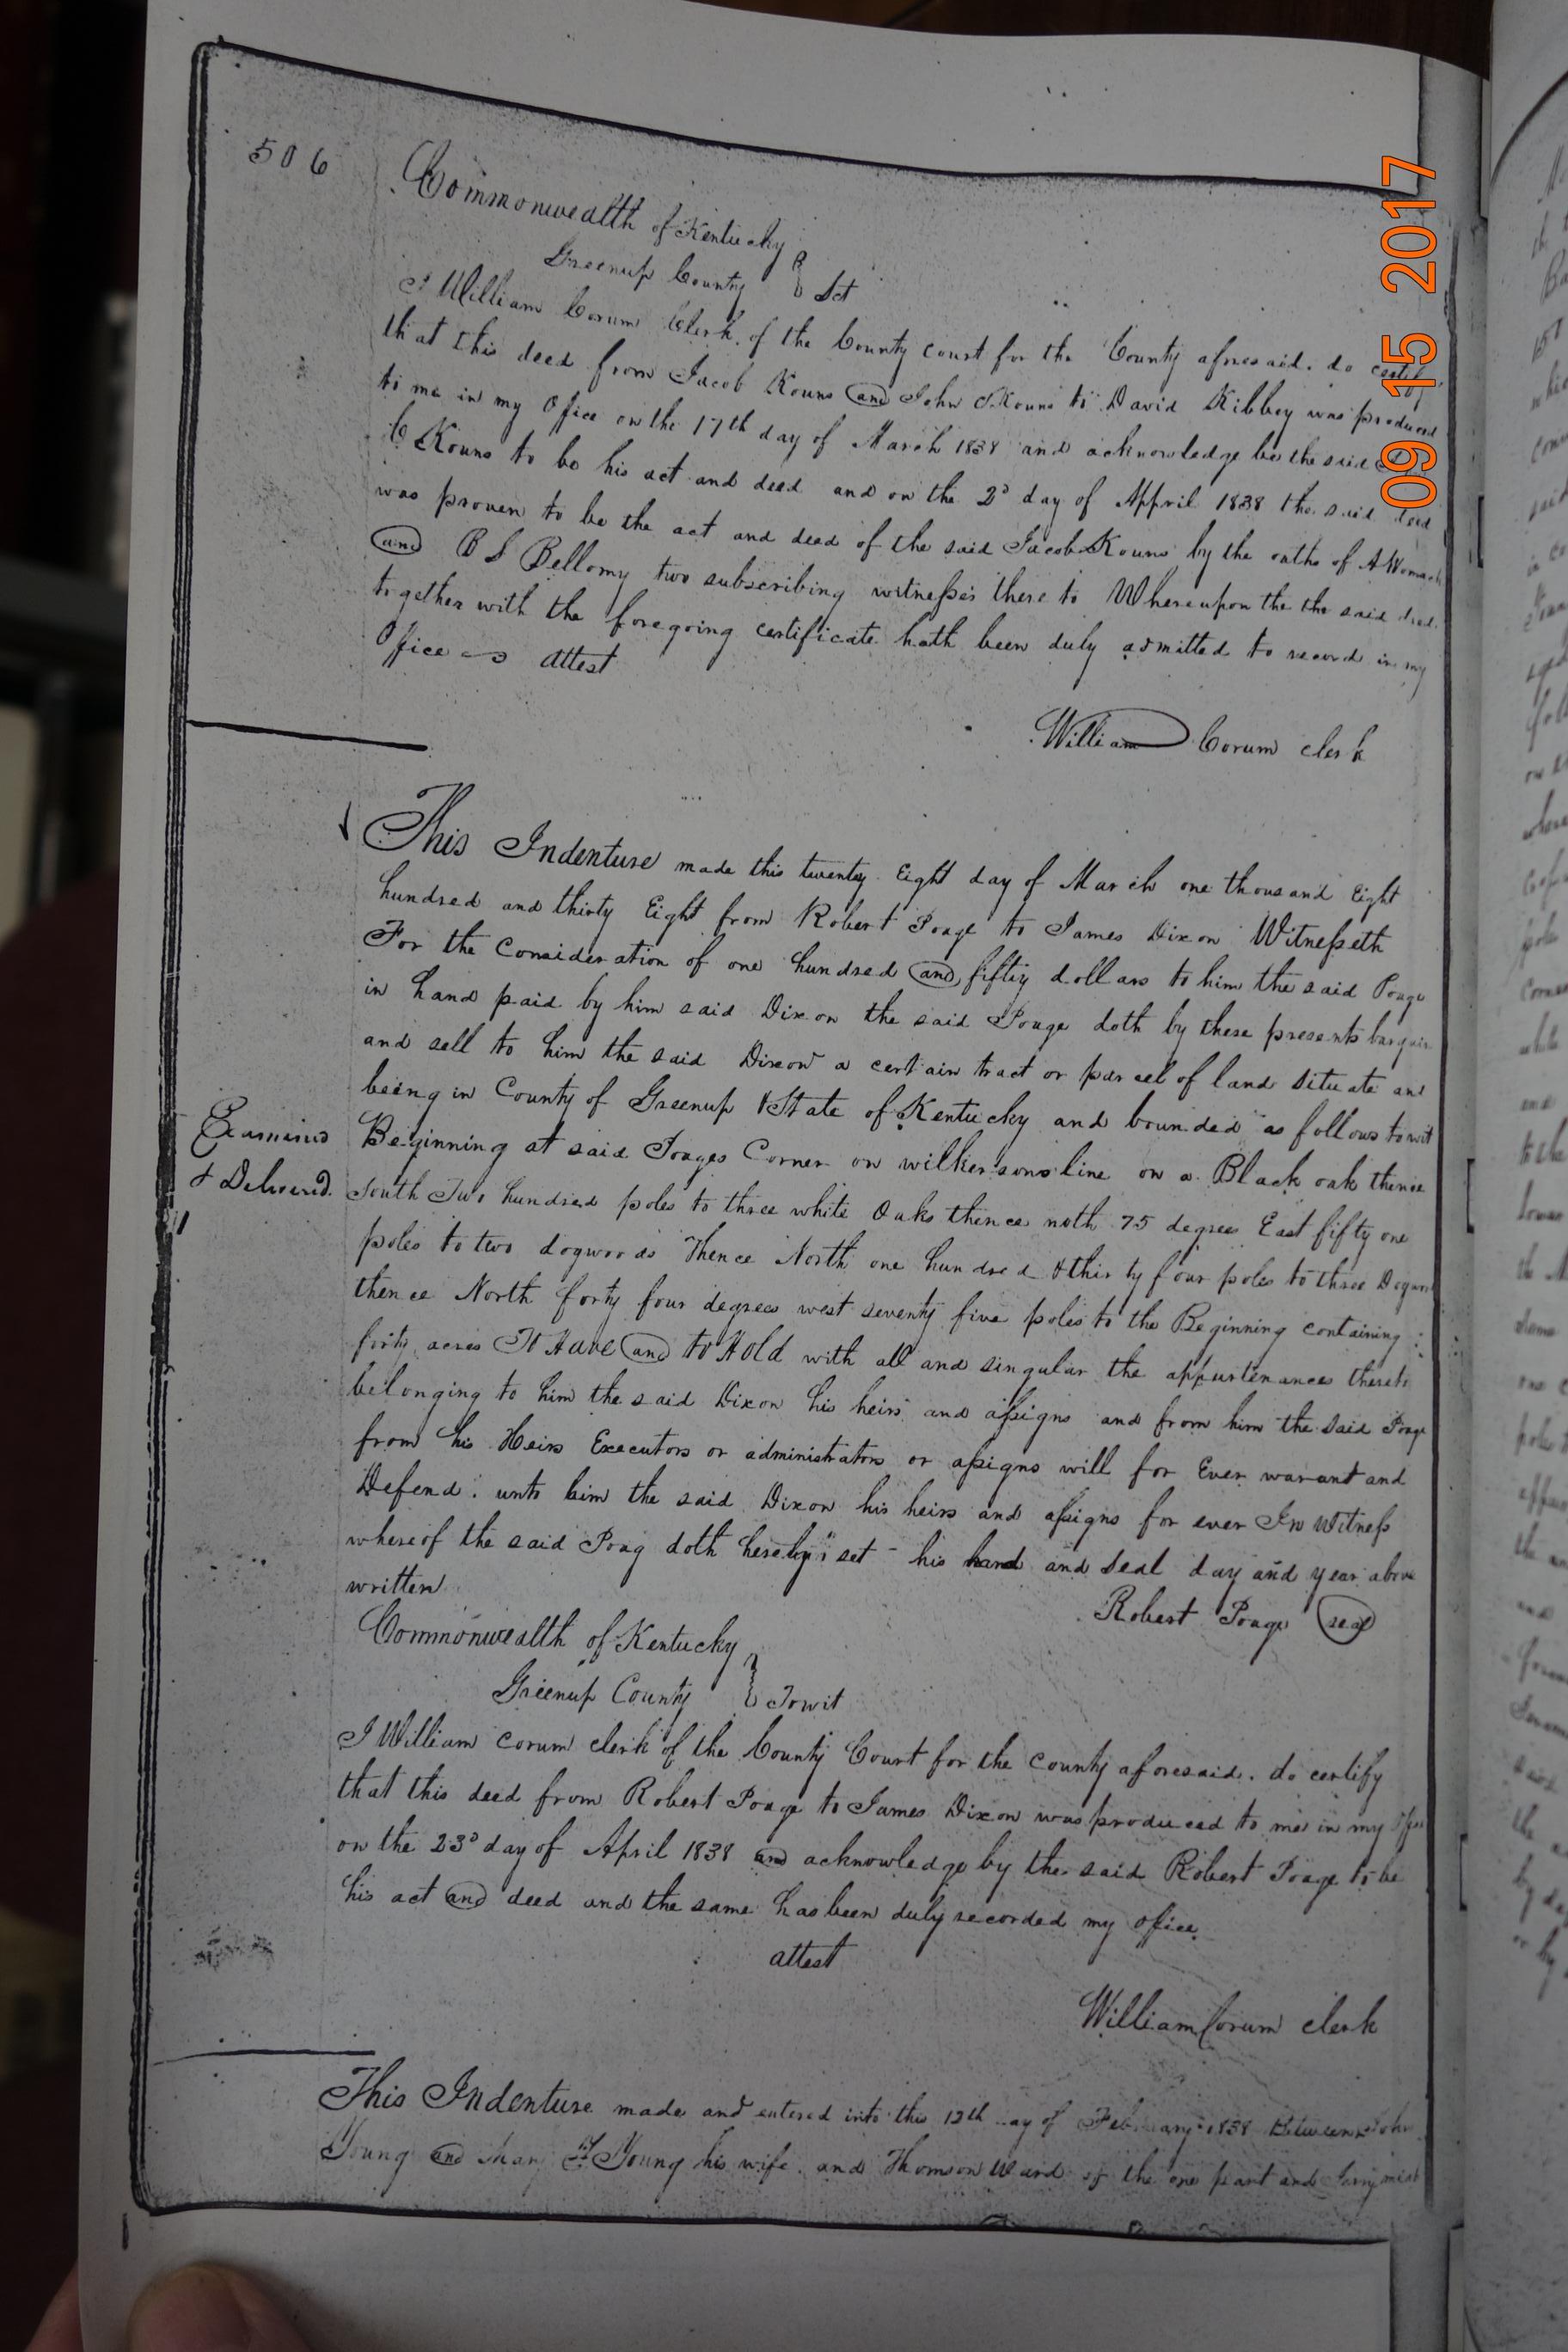 506
Commonwealth of Kentucky
Greenup County } Sct
I William Corum Clerk of the County court for the County aforesaid. do certify
that this deed from Jacob Kouns and John C Kouns to David Kibbey was produced
to me in my Office on the 17th day of March 1838 and acknowledge be the said
C Kouns to be his act and deed and on the 2d day of Appril 1838 the said deed
was proven to be the act and deed of the said Jacob Kouns by the oaths of A Womack
and B S Bellomy two subscribing witnesses there to Whereupon the the said deed
together with the foregoing certificate hath been duly admitted to record in my
Office attest
William Corum clerk
This Indenture made this twenty Eight day of March one thousand Eight
hundred and thirty Eight from Robert Poage to James Dixon Witnesseth
For the Consideration of one hundred and fifty dollars to him the said Poage
in hand paid by him said Dixon the said Poage doth by these presents bargain
and sell to him the said Dixon a certain tract or parcel of land situate and
being in County of Greenup & State of Kentucky and bounded as follows towit
Examined
& Delivered
Beginning at said Poages Corner on wilkersons line on a Black oak thence
South Two hundred poles to three white Oaks thence noth 75 degrees East fifty one
poles to two dogwoods Thence North one hundred & thirty four poles to three Dogwood
thence North forty four degrees west seventy five poles to the Beginning containing
forty acres To Have and to Hold with all and singular the appurtenances thereto
belonging to him the said Dixon his heirs and assigns and from him the said Poage
from his Heirs Executors or administrators or assigns will for Ever warant and
Defend. unto him the said Dixon his heirs and assigns for ever In Witness
whereof the said Poag doth hereby set his hand and seal day and year above
written
Robert Poage seal
Commonwealth of Kentucky
Greenup County } Towit
I William Corum clerk of the County Court for the County aforesaid. do certify
that this deed from Robert Poage to James Dixon was produced to me in my Office
on the 23d day of April 1838 and acknowledge by the said Robert Poage to be
his act and deed and the same has been duly recorded my office
attest
William Corum clerk
This Indenture made and entered into this 12th day of February 1838 Between John
Young and Mary Young his wife. and Thomson Ward of the one part and
09 15 2017